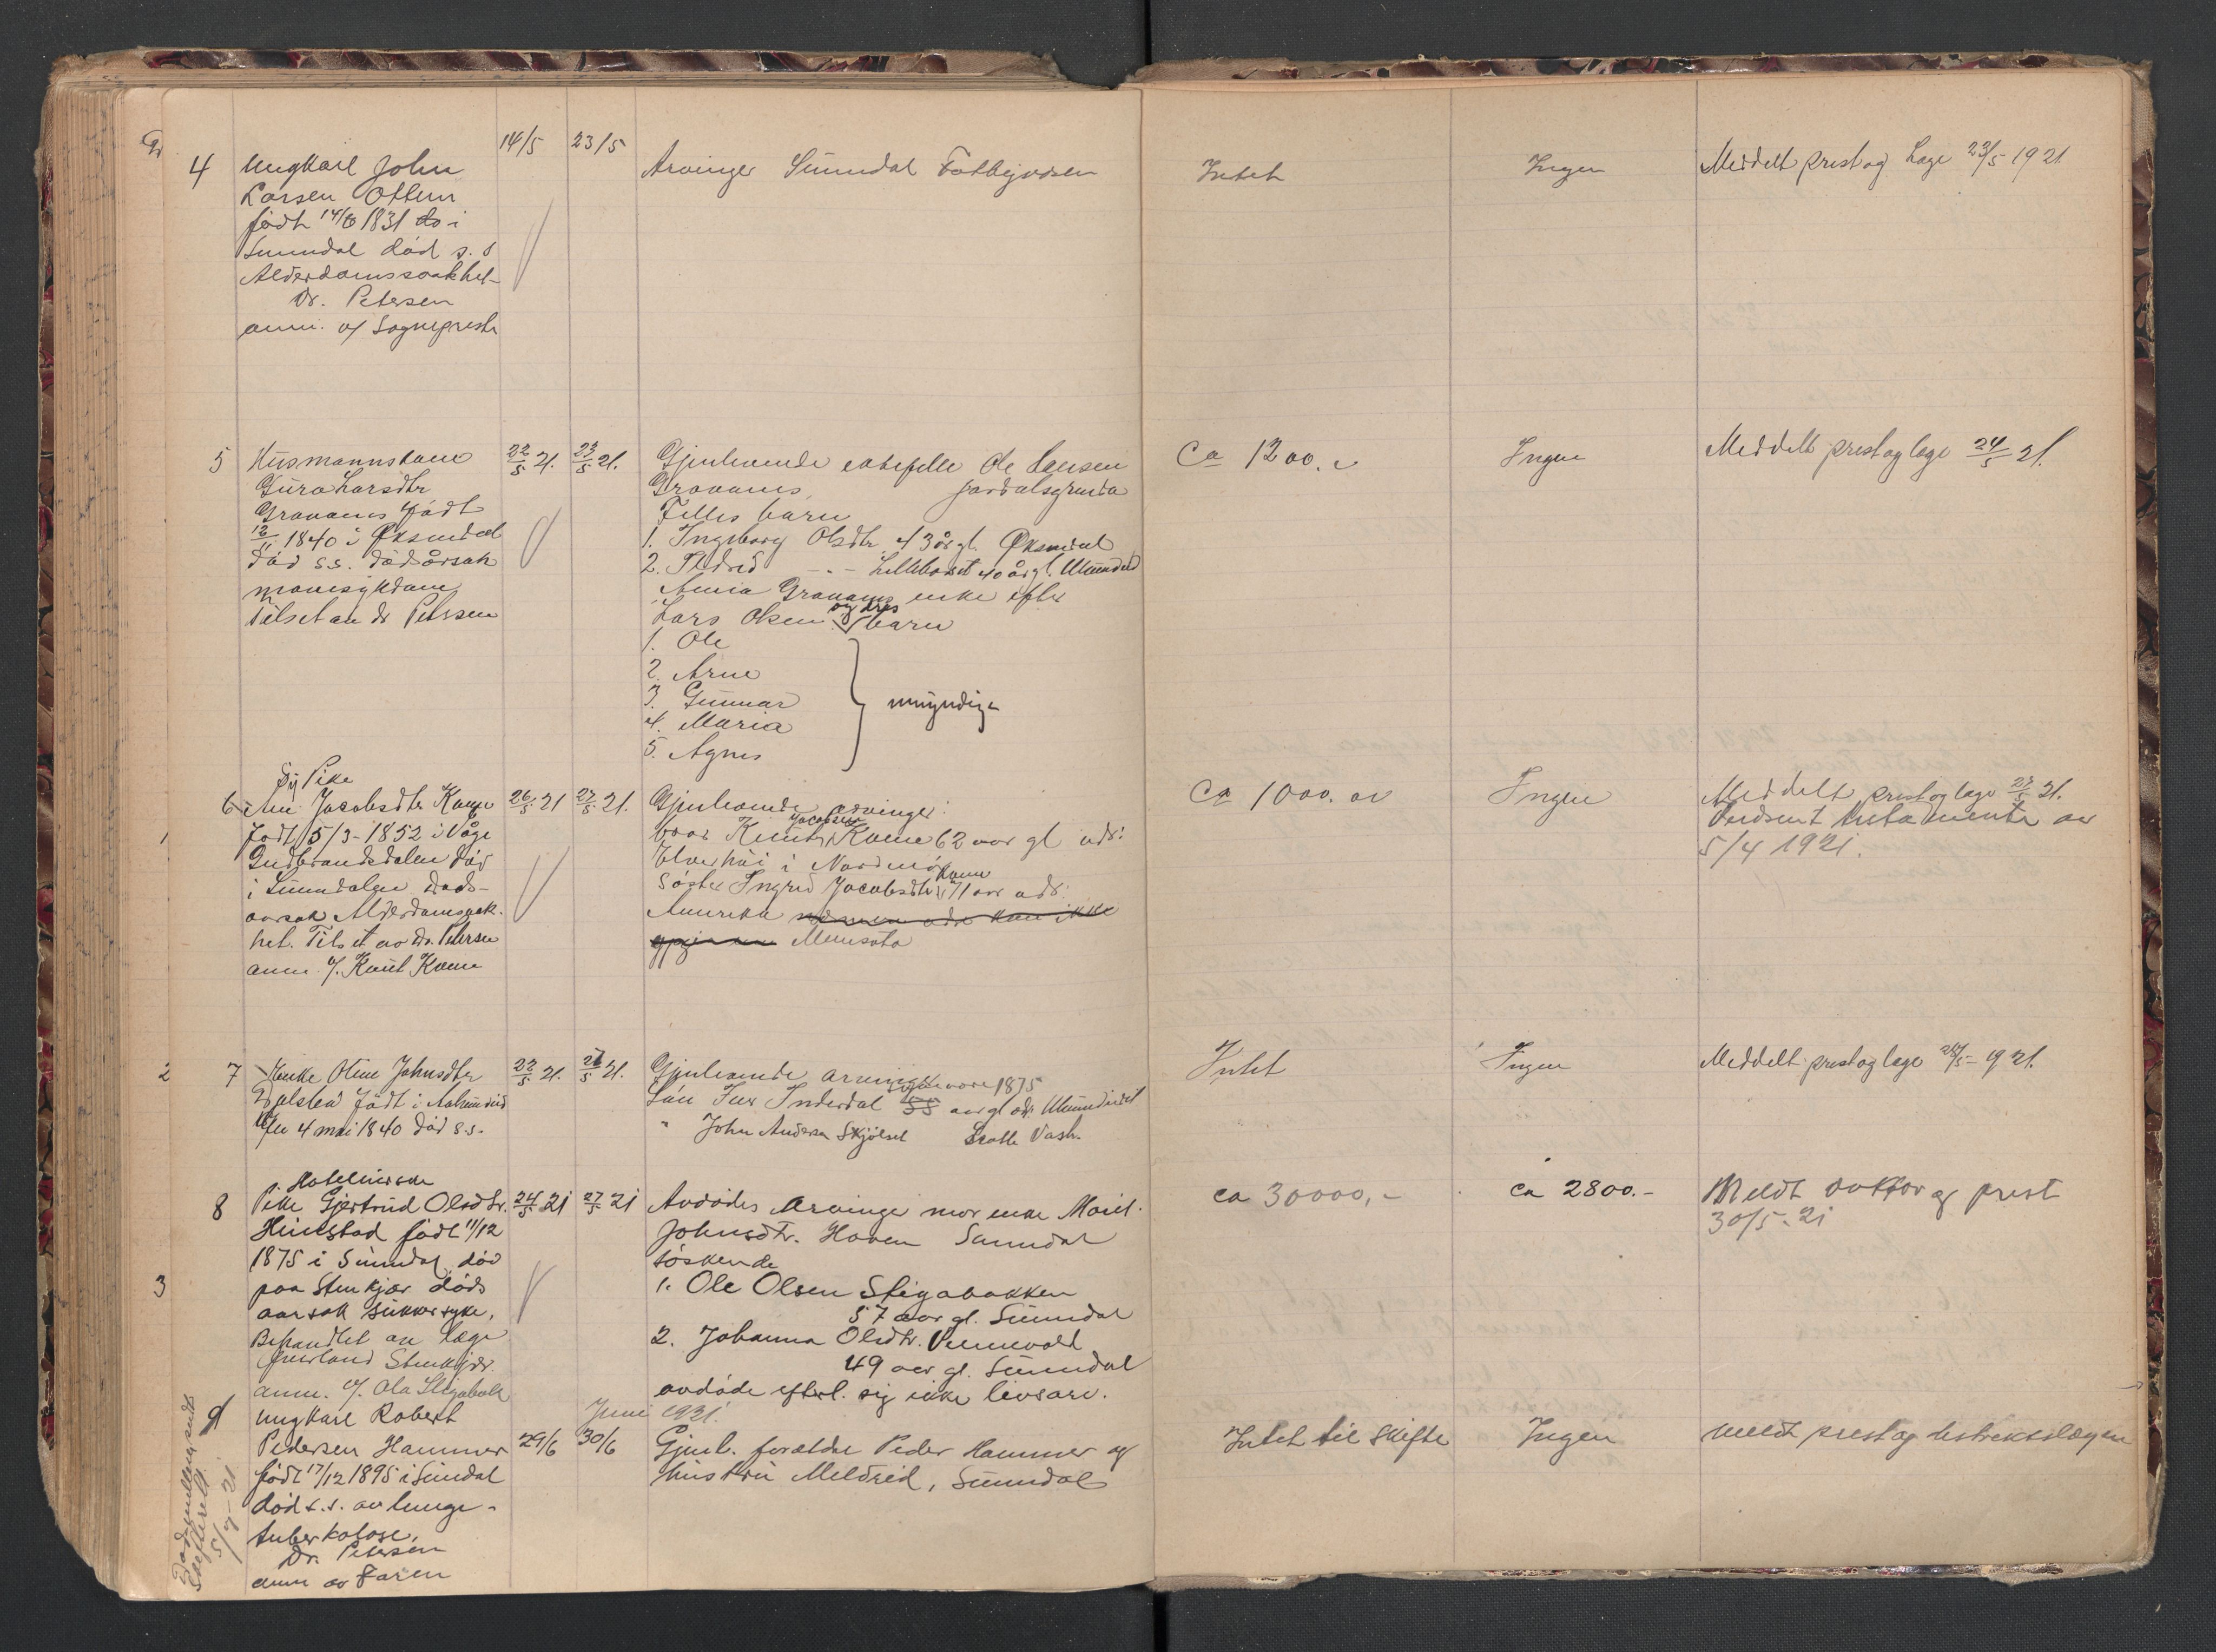 4
Ungkarl John
Larsen Ottem
født 14/6 1831 i
Sunndal død s. s
Alderdomssvakhet
Dr. Petersen
anm. v/ Sognepresten
14/5
23/5
Arvinger Sunndal Fattigvæsen
Intet
Ingen
Meddelt prest og læge 23/5 1921
5
Husmannskone
Guro Larsdtr
Gravaune født
12/11 1840 i Øksendal
død s.s. dødsårsak
mavesykdom
Tilset av dr Petersen
22/5 21.
23/5 21.
Gjenlevende ektefelle Ole Larsen
Jordalsgrenda
Felles barn
1. Ingeborg Olsdtr 43 år gl. Øksendal
2. Ildrid -.- Lillebost 40 år gl. Ulvundeid
Anna enke efter
Lars Olsen og dres barn
1. Ole
2. Arne
3. Gunnar
4. Maria
5. Agnes
umyndige
Ca 1200.
Ingen
Meddelt prest og læge 24/5 21.
6
Pike
Jacobsdtr
født 15/3-1852 i Våge
Gudbrandsdalen død
i Sunndalen. Døds-
aarsak Alderdomssvak-
het. Tilset av Dr. Petersen
anm. v/. Knut
26/5 21
27/5 21.
Gjenlevende arvinger:
bror Knut Jacobsen 62 aar gl adr:
i Nordmøre
Søster Ingrid Jacobsdtr 71 aar adr:
Amerika
Minesota
Ca 1000.
Ingen
Meddelt prest og læge 27/5 21.
testamente av
5/4 1921.
1
2
7
Enke Oline Johnsdtr
født i
den 4 mai 1840 død s.s.
22/5 21.
Gjenlevende arvinger
1875
Søn Iver Inderdal aar gl adr. Ulvundeidet
" John Andersen Skjølset Seatle Vash.
Intet
Ingen
Meddelt prest og læge 28/5-921.
8
Hotelleierske
Pike Gjertrud Olsdtr.
født 11/12
1875 i Sunndal død
paa Stenkjær døds
aarsak sukkersyke,
Behandlet av læge
Stenkjær.
anm. v/. Ola Stigabak
24/5 21
27/5 21
Avdødes Arvinge mor enke Marit
Johnsdtr. Hoven Sunndal
søskende
1. Ole Olsen Stigabakken
57 aar gl. Sunndal
2. Johanna Olsdtr. Vennevold
49 aar gl. Sunndal
avdøde efterl. sig ikke livsarv.
ca 30000,-
ca 2800.-
Meldt doktor og prest
30/5. 21
3
Juni 1921.
9
Ungkarl Robert
Pedersen Hammer
født 17/12 1895 i Sundal
død s.s. av lunge-
tuberkolose,
Dr. Petersen
anm av Faren
29/6
30/6
Gjenl. forældre Peder Hammer og
hustru Meldrid, Sunndal
Intet til skifte
Ingen
meldt prest og distriktslægen
5/7-21